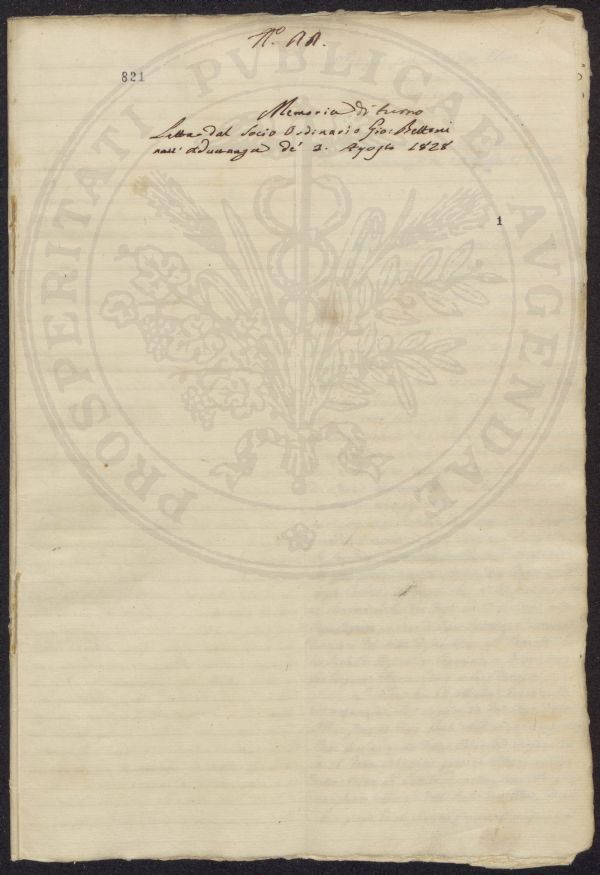 N.º
821
Memoria di turno
Letta dal Socio Ordinario Gio: Bettoni
nell' adunanza de' 3. Agosto 1828
1
PROSPERITATI PVBLICAE AVGENDAE